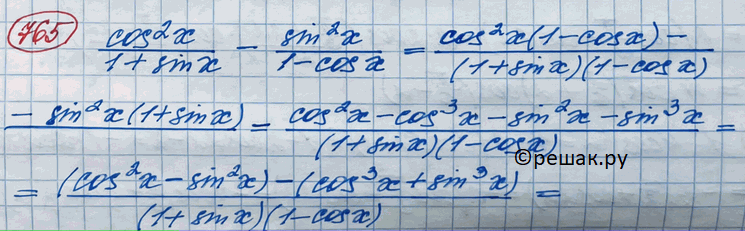 765 cos²x/(1+sinx) − sin²x/(1−cosx) = cos²x(1−cosx)−/(1+sinx)(1−cosx)
− sin²x(1+sinx) = cos²x−cos³x−sin²x−sin³x/(1+sinx)(1−cosx) =
©решак.ру
= (cos²x−sin²x)−(cos³x+sin³x)/(1+sinx)(1−cosx) =